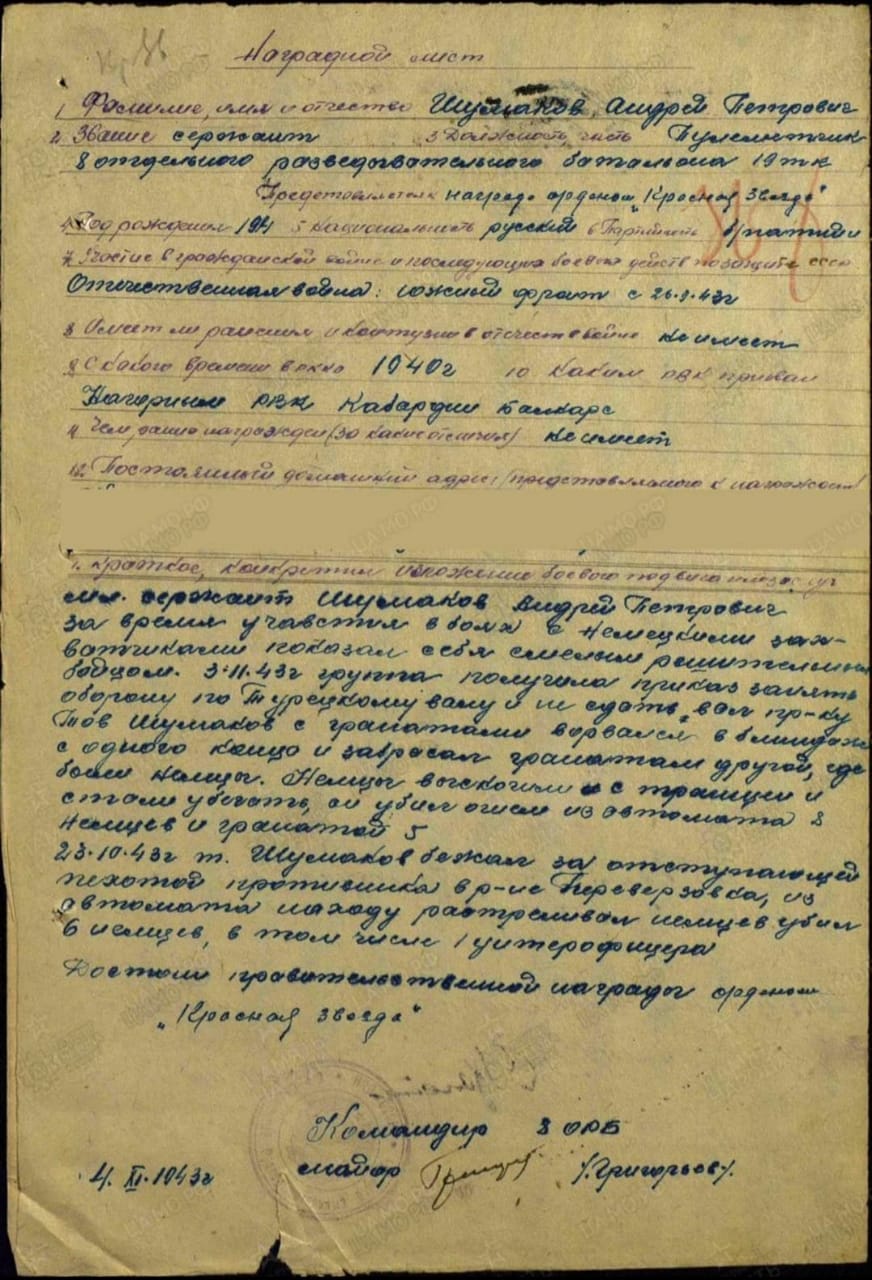 Наградной лист
1. Фамилие, имя и отчество Шумаков Андрей Петрович
2. Звание сержант 3 Должность, часть Пулеметчик
отдельного разведывательного батальона 19 тк
Представляется к награде орденом „Красная Звезда"
4. Год рождения 5 Национальность русский 6 Партийность б/партий
7. Участие в гражданской войне и последующих боевых действ по защите СССР
Отечественная война: южный фронт с 43г
8 Имеет ли ранения и контузию в отечеств войне не имеет
9 С какого времени в РККА 1940г 10 Каким РВК призван
Нагорным РВК Кабардин Балкарс
11 Чем ранее награжден (за какие отличия) не имеет
12. Постоянный домашний адрес (представляемого к
1. Краткое, конкретное изложение боевого подвига или заслуг
мл. сержант Шумаков Андрей Петрович
за время участия в боях с немецкими зах-
ватчиками показал себя смелым решительным
бойцом. 3.11.43г группа получила приказ занять
оборону по Турецкому валу и не сдать вал пр-ку
Тов Шумаков с гранатами ворвался в блиндаж
с одного конца и забросал гранатам другой, где
были немцы. Немцы выскочили с траншеи и
стали убегать, он убил огнем из автомата 3
немцев и гранатой 5
23.10.43г т. Шумаков бежал за отступающей
пехотой противника в р-не Переверзовка, из
автомата находу растреливал немцев убил
6 немцев, в том числе 1 унтерофицера
Достоин правительственной награды орденом
„Красная Звезда"
Командир ОРБ
майор /Григорьев/.
4. XI. 1943г